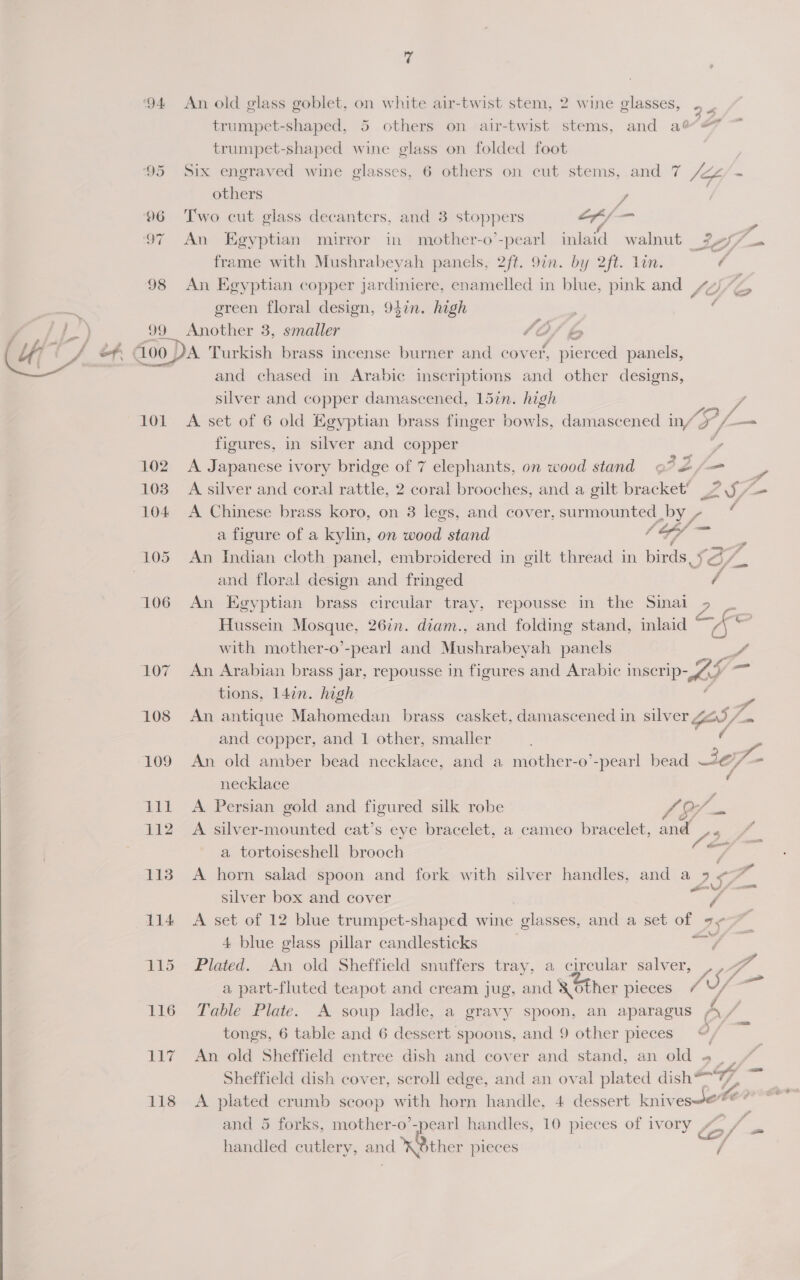 7
94 An old glass goblet, on white air-twist stem, 2 wine glasses,
trumpet-shaped, 5 others on air-twist stems, and a
trumpet-shaped wine glass on folded foot
95 Six engraved wine glasses, 6 others on cut stems, and 7
others
96 Two cut glass decanters, and 3 stoppers
97 An Egyptian mirror in mother-o'-pearl inlaid walnut
frame with Mushrabeyah panels, 2ft. 9in. by 2ft. 1in.
98 An Egyptian copper jardiniere, enamelled in blue, pink and
green floral design, 9½in. high
99 Another 3, smaller
100 A Turkish brass incense burner and cover, pierced panels,
and chased in Arabic inscriptions and other designs,
silver and copper damascened, 15in. high
101 A set of 6 old Egyptian brass finger bowls, damascened in
figures, in silver and copper
102 A Japanese ivory bridge of 7 elephants, on wood stand
103 A silver and coral rattle, 2 coral brooches, and a gilt bracket
104 A Chinese brass koro, on 3 legs, and cover, surmounted by
a figure of a kylin, on wood stand
105 An Indian cloth panel, embroidered in gilt thread in birds,
and floral design and fringed
106 An Egyptian brass circular tray, repousse in the Sinai
Hussein Mosque, 26in. diam., and folding stand, inlaid
with mother-o'-pearl and Mushrabeyah panels
107 An Arabian brass jar, repousse in figures and Arabic inscrip-
tions, 14in. high
108 An antique Mahomedan brass casket, damascened in silver
and copper, and 1 other, smaller
109 An old amber bead necklace, and a mother-o'-pearl bead
necklace
111 A Persian gold and figured silk robe
112 A silver-mounted cat's eye bracelet, a cameo bracelet, and
a tortoiseshell brooch
113 A horn salad spoon and fork with silver handles, and a
silver box and cover
114 A set of 12 blue trumpet-shaped wine glasses, and a set of
4 blue glass pillar candlesticks
115 Plated. An old Sheffield snuffers tray, a circular salver,
a part-fluted teapot and cream jug, and other pieces
116 Table Plate. A soup ladle, a gravy spoon, an aparagus
tongs, 6 table and 6 dessert spoons, and 9 other pieces
117 An old Sheffield entree dish and cover and stand, an old
Sheffield dish cover, scroll edge, and an oval plated dish
118 A plated crumb scoop with horn handle, 4 dessert knives
and 5 forks, mother-o'-pearl handles, 10 pieces of ivory
handled cutlery, and other pieces